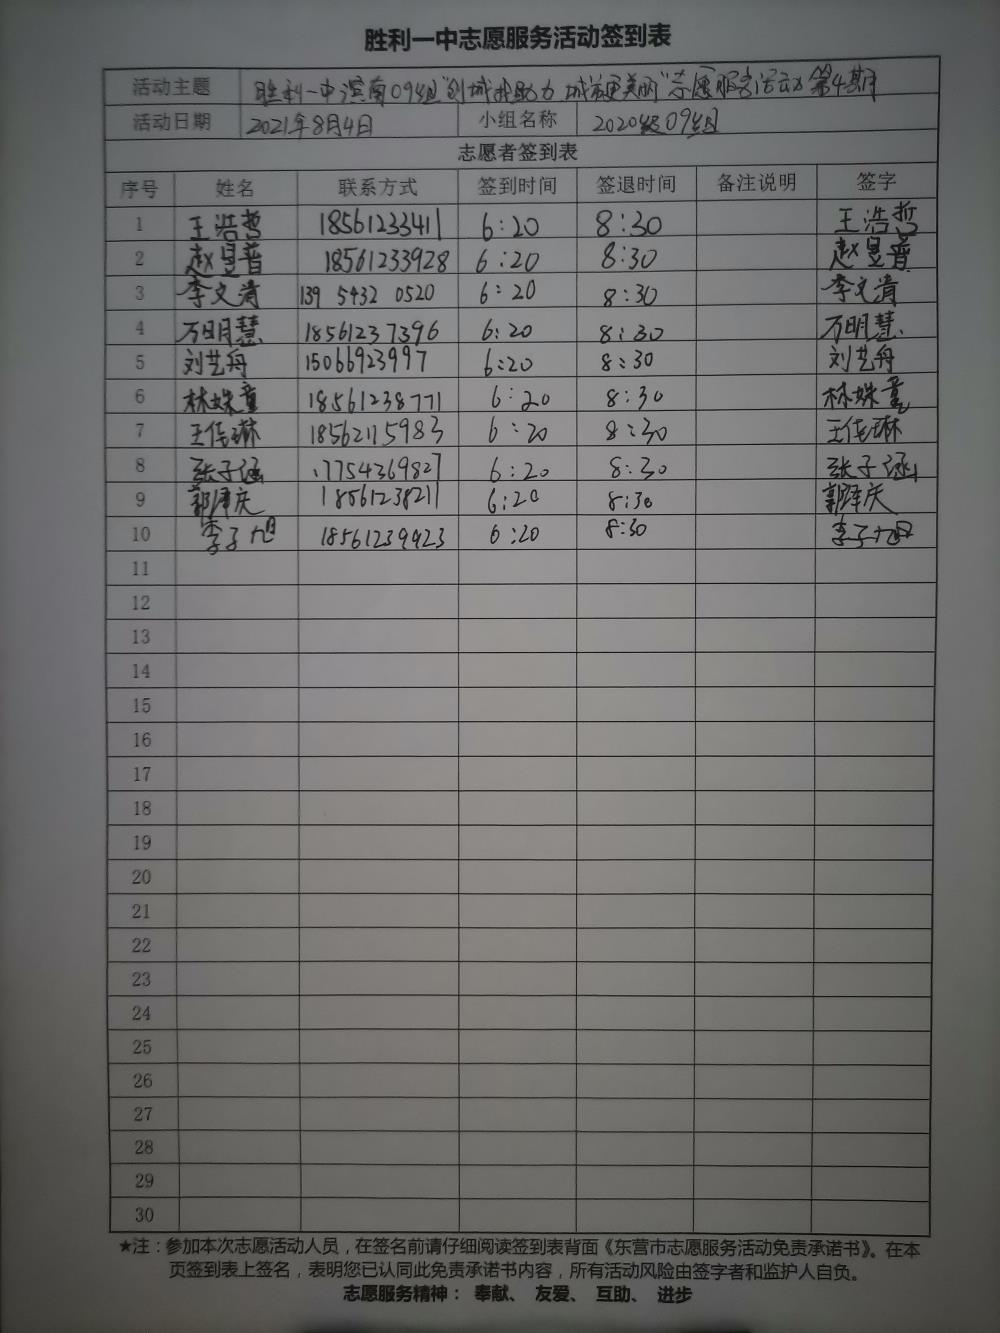 胜利一中志愿服务活动签到表
活动主题 胜利一中滨南09组"创城我助力 城市更美丽"志愿服务活动第4期
活动日期 2021年8月4日 小组名称 2020级09组
志愿者签到表
序号 姓名 联系方式 签到时间 签退时间 备注说明 签字
1 王浩哲 18561233411 6:20 8:30 王浩哲
2 赵昱普 18561233928 6:20 8:30 赵昱普
3 李文清 139 5432 0520 6:20 8:30 李文清
4 万明慧 18561237396 6:20 8:30 万明慧
5 刘艺舟 15066923997 6:20 8:30 刘艺舟
6 林姝童 18561238771 6:20 8:30 林姝童
7 王佳琳 18562115983 6:20 8:30 王佳琳
8 张子涵 17754369827 6:20 8:30 张子涵
9 郭泽庆 18561238211 6:20 8:30 郭泽庆
10 李子旭 18561239923 6:20 8:30 李子旭
11
12
13
14
15
16
17
18
19
20
21
22
23
24
25
26
27
28
29
30
★注：参加本次志愿活动人员，在签名前请仔细阅读签到表背面《东营市志愿服务活动免责承诺书》。在本
页签到表上签名，表明您已认同此免责承诺书内容，所有活动风险由签字者和监护人自负。
志愿服务精神： 奉献、 友爱、 互助、 进步